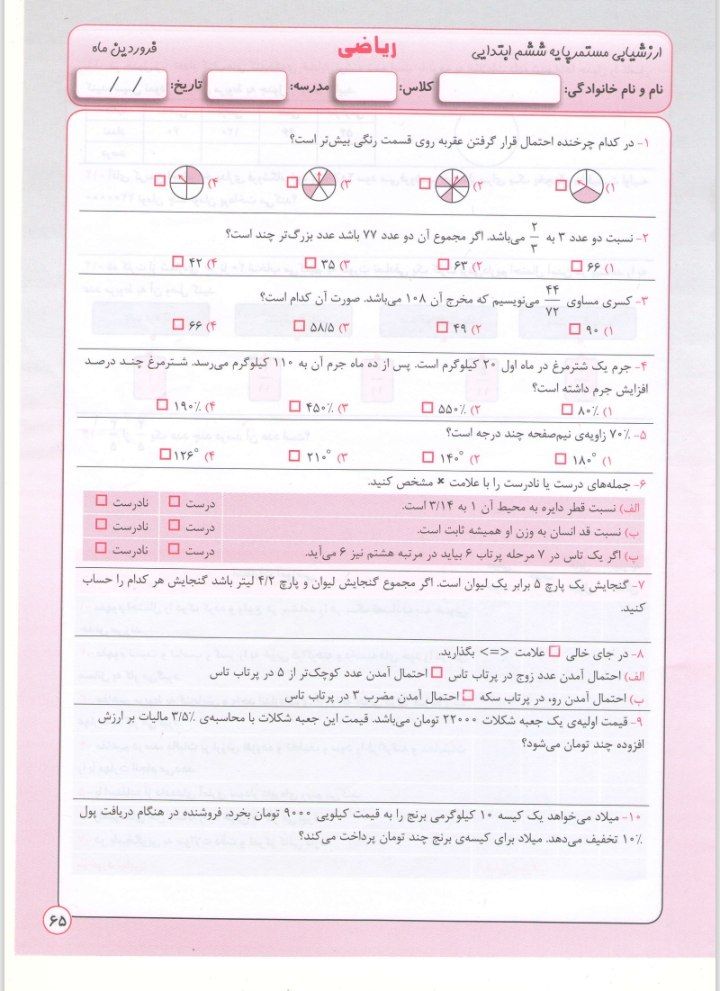 ارزشیابی مستمر پایه ششم ابتدایی
ریاضی
فروردین ماه
نام و نام خانوادگی:
کلاس:
مدرسه:
تاریخ: / /
۱- در کدام چرخنده احتمال قرار گرفتن عقربه روی قسمت رنگی بیش‌تر است؟
۱) ۲) ۳) ۴)
۲- نسبت دو عدد ۳ به ۲/۳ می‌باشد. اگر مجموع آن دو عدد ۷۷ باشد عدد بزرگ‌تر چند است؟
۱) ۶۶ ۲) ۶۳ ۳) ۳۵ ۴) ۴۲
۳- کسری مساوی ۴۴/۷۲ می‌نویسیم که مخرج آن ۱۰۸ می‌باشد. صورت آن کدام است؟
۱) ۹۰ ۲) ۴۹ ۳) ۵۸/۵ ۴) ۶۶
۴- جرم یک شترمرغ در ماه اول ۲۰ کیلوگرم است. پس از ده ماه جرم آن به ۱۱۰ کیلوگرم می‌رسد. شترمرغ چند درصد
افزایش جرم داشته است؟
۱) ۸۰٪ ۲) ۵۵۰٪ ۳) ۴۵۰٪ ۴) ۱۹۰٪
۵- ۷۰٪ زاویه‌ی نیم‌صفحه چند درجه است؟
۱) ۱۸۰° ۲) ۱۴۰° ۳) ۲۱۰° ۴) ۱۲۶°
۶- جمله‌های درست یا نادرست را با علامت × مشخص کنید.
الف) نسبت قطر دایره به محیط آن ۱ به ۳/۱۴ است. درست نادرست
ب) نسبت قد انسان به وزن او همیشه ثابت است. درست نادرست
پ) اگر یک تاس در ۷ مرحله پرتاب ۶ بیاید در مرتبه هشتم نیز ۶ می‌آید. درست نادرست
۷- گنجایش یک پارچ ۵ برابر یک لیوان است. اگر مجموع گنجایش لیوان و پارچ ۴/۲ لیتر باشد گنجایش هر کدام را حساب
کنید.
۸- در جای خالی علامت <=> بگذارید.
الف) احتمال آمدن عدد زوج در پرتاب تاس احتمال آمدن عدد کوچک‌تر از ۵ در پرتاب تاس
ب) احتمال آمدن رو، در پرتاب سکه احتمال آمدن مضرب ۳ در پرتاب تاس
۹- قیمت اولیه‌ی یک جعبه شکلات ۲۲۰۰۰ تومان می‌باشد. قیمت این جعبه شکلات با محاسبه‌ی ۳/۵٪ مالیات بر ارزش
افزوده چند تومان می‌شود؟
۱۰- میلاد می‌خواهد یک کیسه ۱۰ کیلوگرمی برنج را به قیمت کیلویی ۹۰۰۰ تومان بخرد. فروشنده در هنگام دریافت پول
۱۰٪ تخفیف می‌دهد. میلاد برای کیسه‌ی برنج چند تومان پرداخت می‌کند؟
۶۵